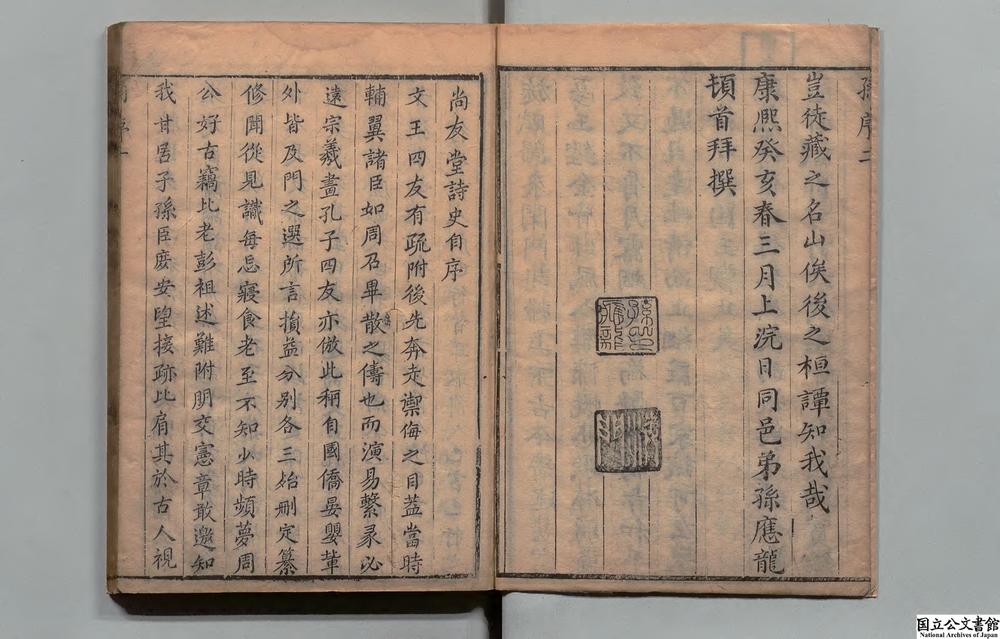 孫序 二
豈徒藏之名山俟後之桓譚知我哉
康熙癸亥春三月上浣日同邑弟孫應龍
頓首拜撰
尚友堂詩史自序
文王四友有疏附後先奔走禦侮之目蓋當時
輔翼諸臣如周召畢散之儔也而演易繫彖必
遠宗羲畫孔子四友亦倣此稱自國僑晏嬰輩
外皆及門之選所言損益分別各三始刪定纂
修聞從見識每忘寢食老至不知少時頻夢周
公好古竊比老彭祖述難附朋交憲章敢邀知
我甘居子孫臣庶安望接跡比肩其於古人視
序 一
国立公文書館
National Archives of Japan